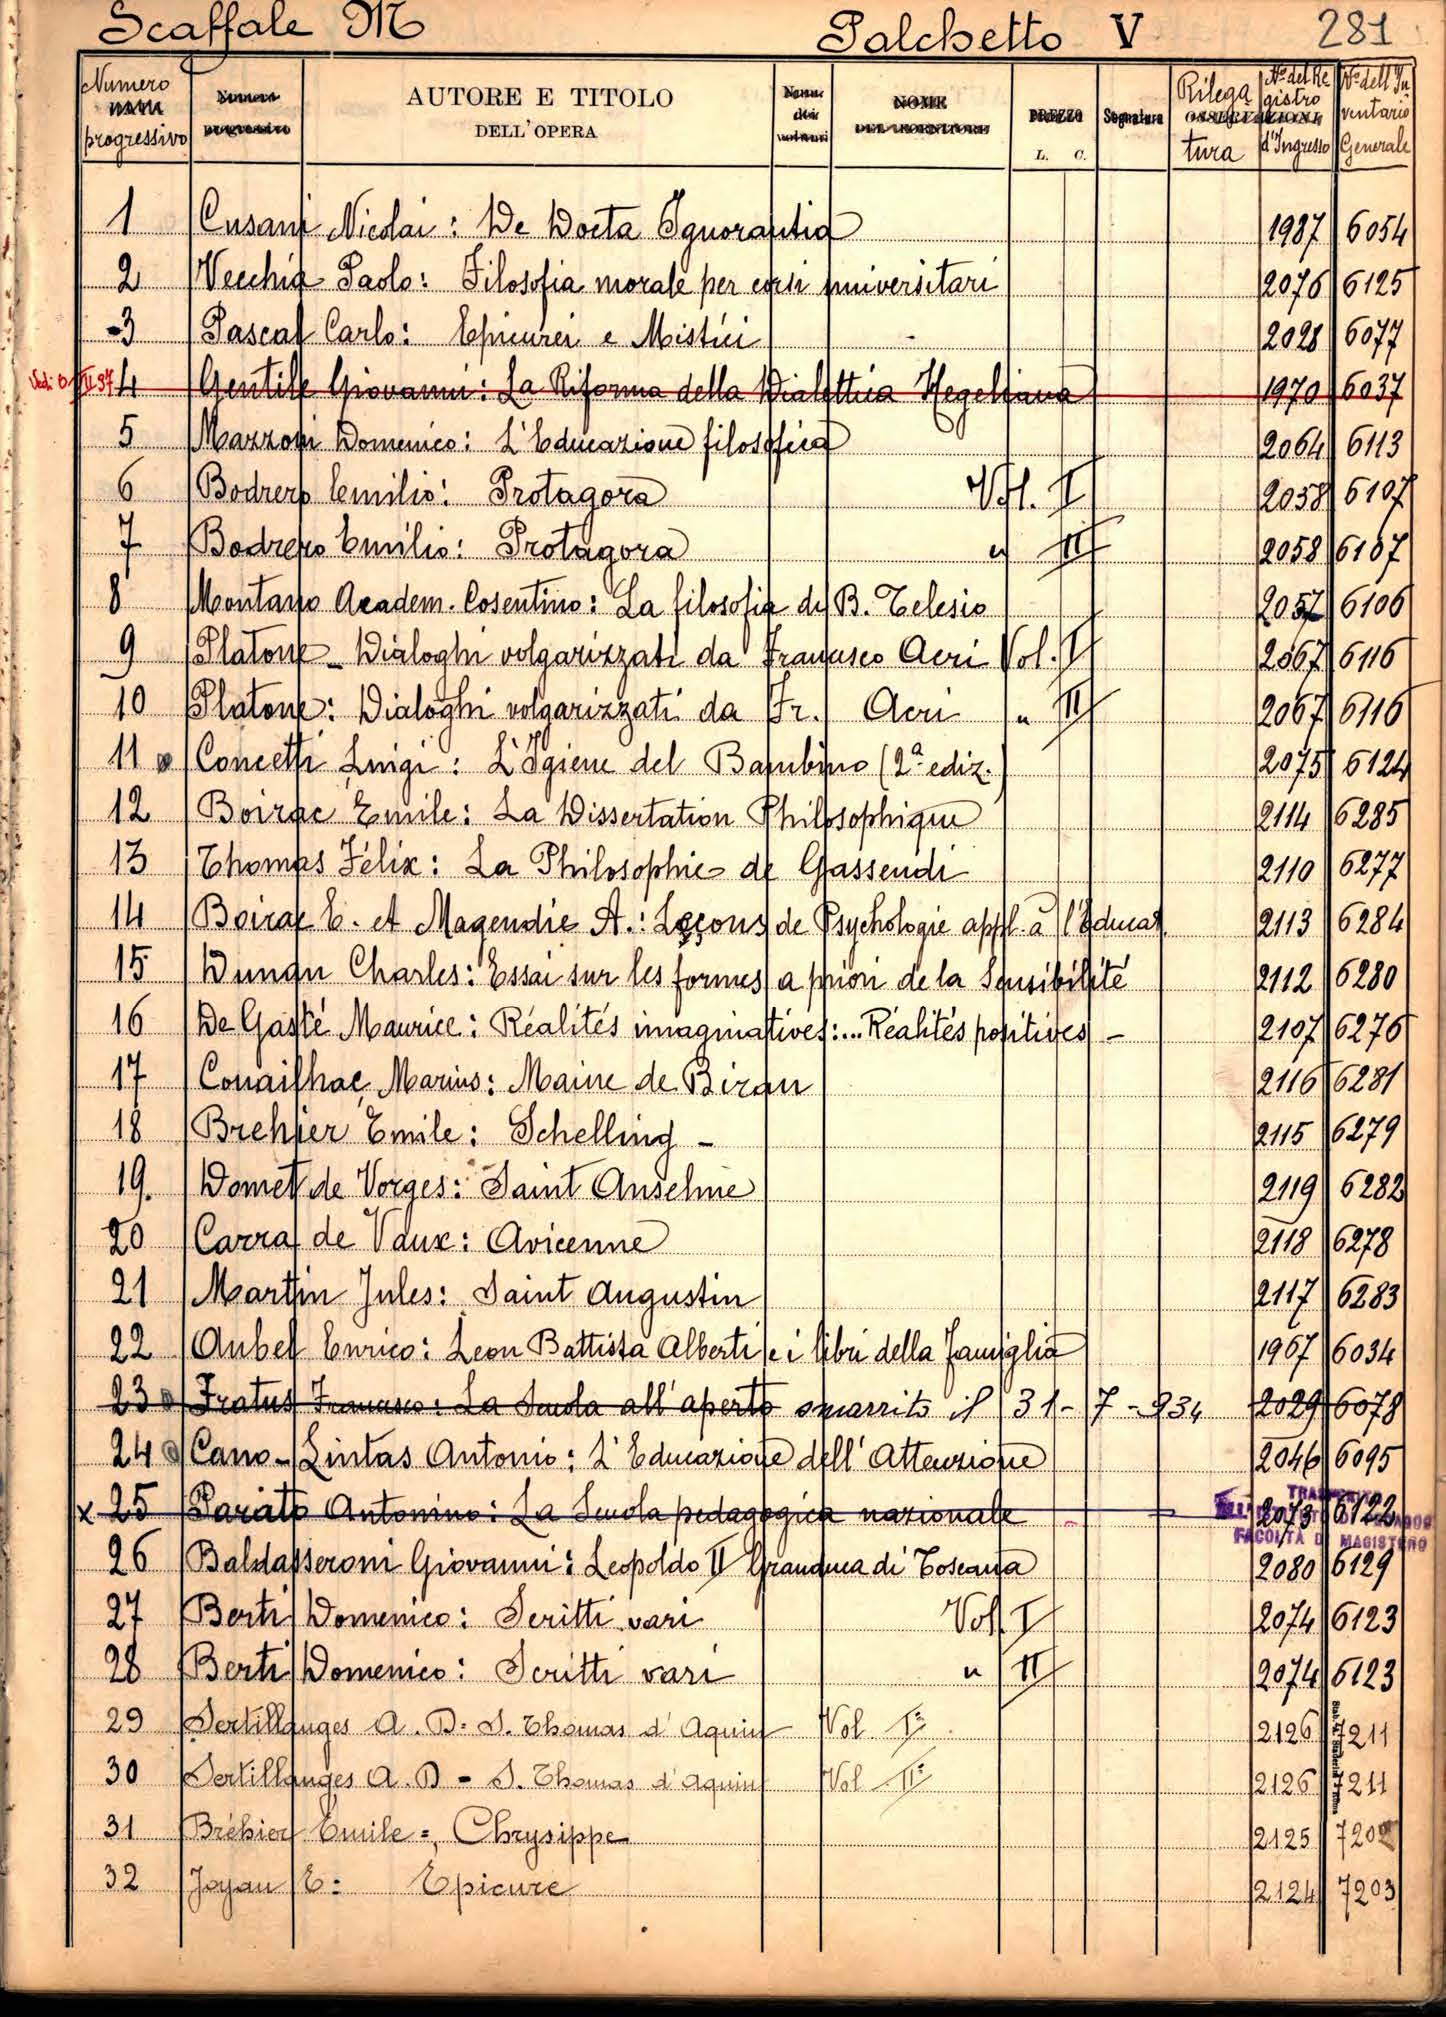 Scaffale M Palchetto V 281
Numero progressivo AUTORE E TITOLO DELL'OPERA NOME DEL FORNITORE PREZZO L. C. Segnatura Rilegatura OSSERVAZIONI N.º del Registro d'Ingresso N.º dell'Inventario Generale
1 Cusani Nicolai: De Docta Ignorantia 1987 6054
2 Vecchia Paolo: Filosofia morale per corsi universitari 2076 6125
3 Pascal Carlo: Epicurei e Mistici 2028 6077
4 Gentile Giovanni: La Riforma della Dialettica Hegeliana 1970 6037
5 Mazzoni Domenico: L'Educazione filosofica 2064 6113
6 Bodrero Emilio: Protagora Vol. I 2058 6107
7 Bodrero Emilio: Protagora " II 2058 6107
8 Montano Academ. Cosentino: La filosofia di B. Telesio 2057 6106
9 Platone - Dialoghi volgarizzati da Francesco Acri Vol. I 2067 6116
10 Platone: Dialoghi volgarizzati da Fr. Acri " II 2067 6116
11 Concetti Luigi: L'Igiene del Bambino (2ª ediz.) 2075 6124
12 Boirac Emile: La Dissertation Philosophique 2114 6285
13 Thomas Félix: La Philosophie de Gassendi 2110 6277
14 Boirac E. et Magendie A.: Leçons de Psychologie appl. à l'Educat. 2113 6284
15 Dunan Charles: Essai sur les formes a priori de la Sensibilité 2112 6280
16 De Gasté Maurice: Réalités imaginatives:... Réalités positives - 2107 6276
17 Couailhac Marius: Maine de Biran 2116 6281
18 Brehier Emile: Schelling - 2115 6279
19. Domet de Vorges: Saint Anselme 2119 6282
20 Carra de Vaux: Avicenne 2118 6278
21 Martin Jules: Saint Augustin 2117 6283
22 Aubel Enrico: Leon Battista Alberti e i libri della Famiglia 1967 6034
23 Fratus Francesco: La Scuola all'aperto smarrito il 31-7-934 2029 6078
24 Cano-Lintas Antonio: L'Educazione dell'Attenzione 2046 6095
x 25 Parato Antonino: La Scuola pedagogica nazionale 2073 6122
FACOLTÀ DI MAGISTERO
26 Baldasseroni Giovanni: Leopoldo II Granduca di Toscana 2080 6129
27 Berti Domenico: Scritti vari Vol. I 2074 6123
28 Berti Domenico: Scritti vari " II 2074 6123
29 Sertillanges A. D: S. Thomas d'Aquin Vol I: 2126 7211
30 Sertillanges A. D - S. Thomas d'Aquin Vol II: 2126 7211
31 Bréhier Emile =, Chrysippe 2125
32 Joyau E: Epicure 2124 7203